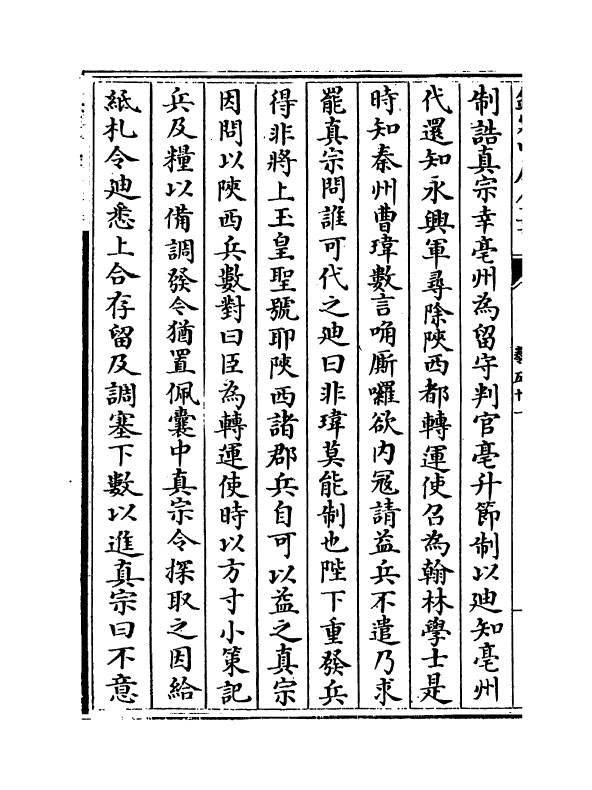 制誥真宗幸亳州為留守判官亳升節制以廸知亳州
代還知永興軍尋除陜西都轉運使召為翰林學士是
時知秦州曹瑋數言唃厮囉欲内冦請益兵不遣乃求
罷真宗問誰可代之廸曰非瑋莫能制也陛下重發兵
得非將上玉皇聖號耶陜西諸郡兵自可以益之真宗
因問以陜西兵數對曰臣為轉運使時以方寸小策記
兵及糧以備調發今猶置佩囊中真宗令探取之因給
紙札令廸悉上合存留及調塞下數以進真宗曰不意